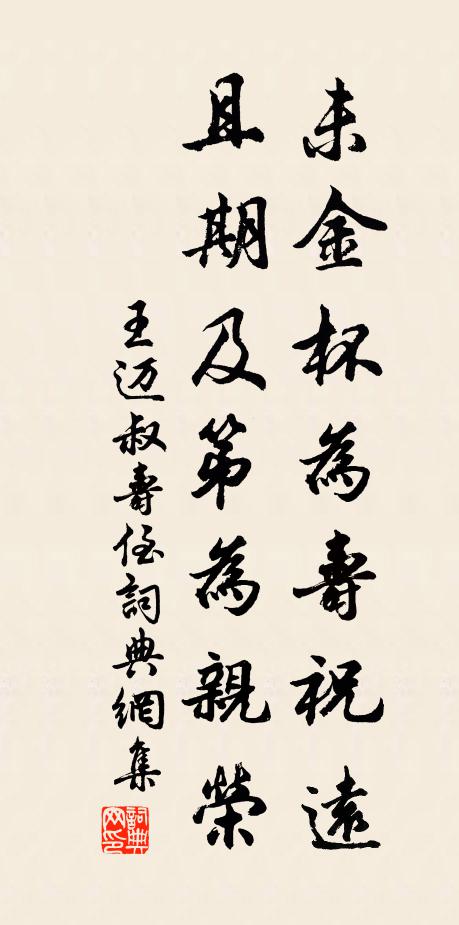 未金杯為壽祝遠
且期及第為親榮
王迈叔壽侄詞典網集
詞典网印